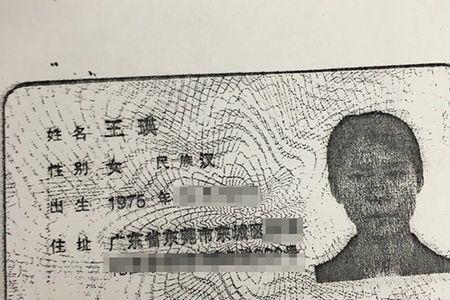 姓名 王瑛
性别 女 民族汉
出生 1975 年
住址 广东省东莞市东城区